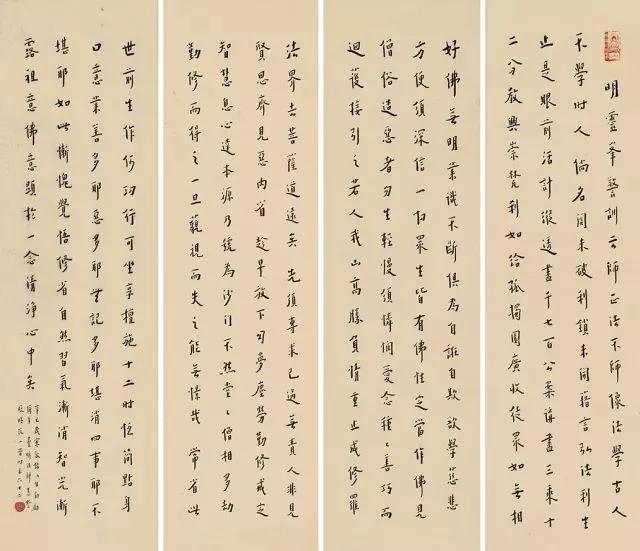 明靈峯警訓云師正法不師像法學古人
不學时人倘名関未破利鎖未開藉言弘法利生
止是眼前活計縱透盡千七百公案講盡三乘十
二分教興崇梵刹如給孤獨園廣收徒眾如無相
好佛無明業識不斷俱為自誑自欺欲學慈悲
方便須深信一切眾生皆有佛性定當作佛見
僧俗造惡者勿生輕慢須憐憫愛念種〻善巧而
迴護接引之若人我山高勝負情重止成修羅
法界去菩薩道遠矣先須專求己過毋責人非見
賢思齊見惡內省趁早放下夢塵勞勤修戒定
智慧息心達本源乃號為沙门不然堂〻僧相多劫
勤修而得之一旦藐視而失之能無懍哉常省此
世前生作何功行可坐享檀施十二时位簡點身
口意業善多耶惡多耶無記多耶堪消四事耶不
堪耶如此慚愧覺悟修省自然習氣漸消智光漸
露祖意佛意顯於一念清淨心中矣